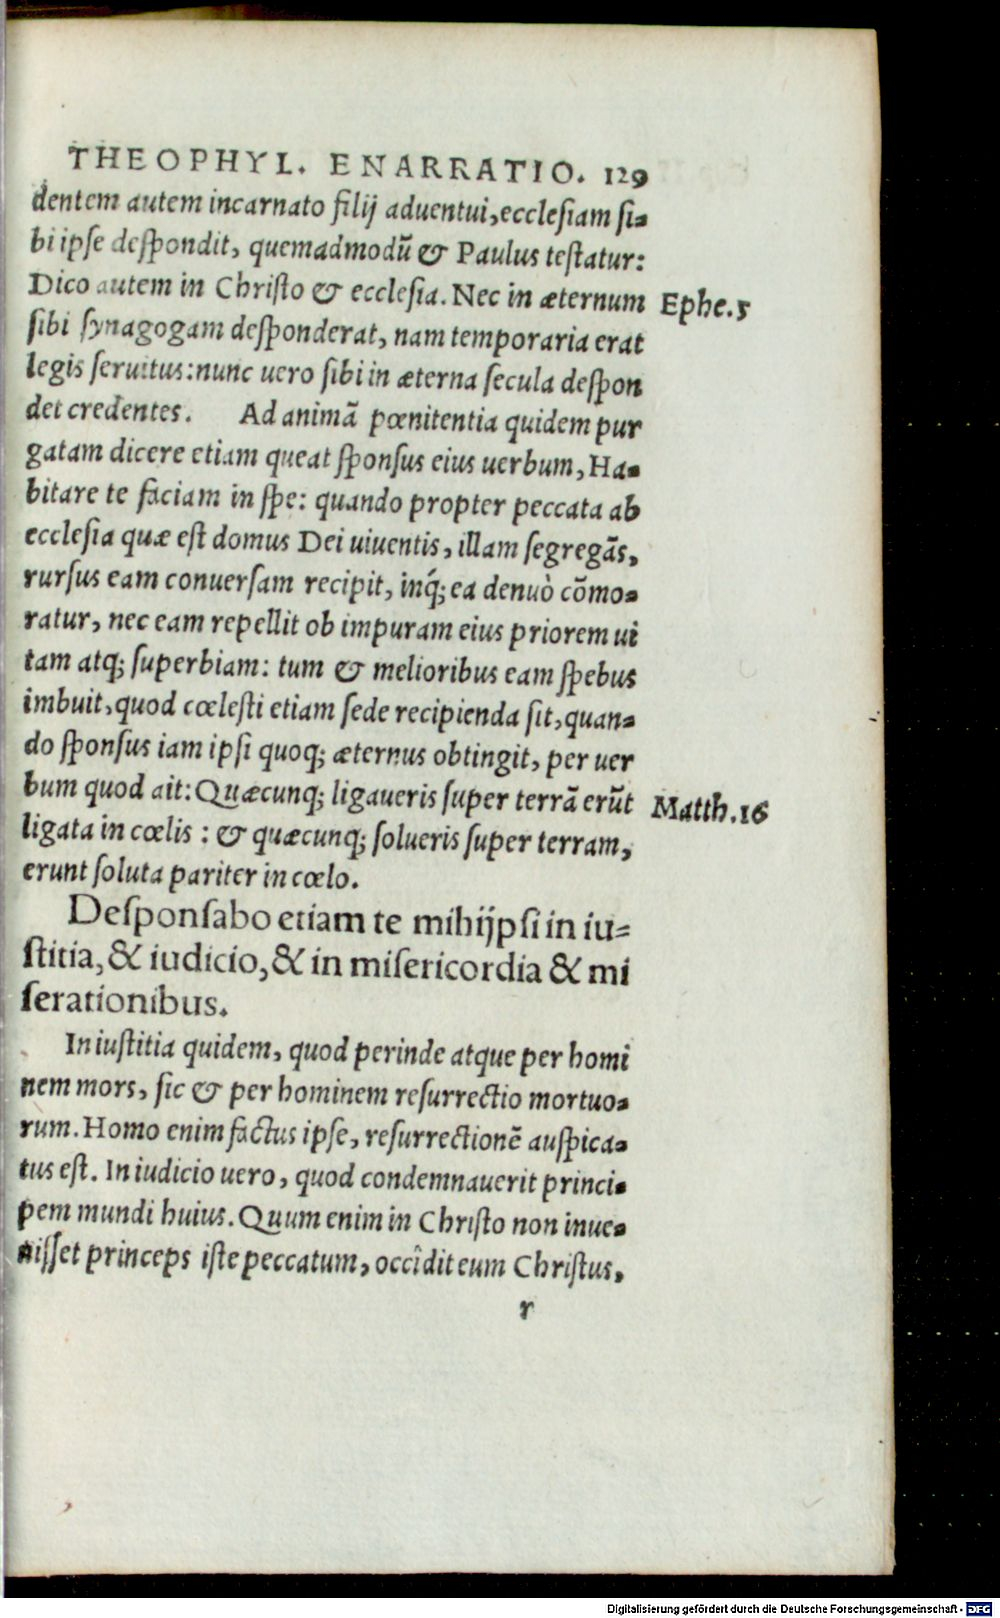 THEOPHYL. ENARRATIO. 129
dentem autem incarnato filij aduentui, ecclesiam si-
bi ipse despondit, quemadmodū & Paulus testatur:
Dico autem in Christo & ecclesia. Nec in æternum
Ephe.5
sibi synagogam desponderat, nam temporaria erat
legis seruitus: nunc uero sibi in æterna secula despon
det credentes. Ad animā pœnitentia quidem pur
gatam dicere etiam queat sponsus eius uerbum, Ha-
bitare te faciam in spe: quando propter peccata ab
ecclesia quæ est domus Dei uiuentis, illam segregās,
rursus eam conuersam recipit, inq́; ea denuò cōmo-
ratur, nec eam repellit ob impuram eius priorem ui
tam atq; superbiam: tum & melioribus eam spebus
imbuit, quod cœlesti etiam sede recipienda sit, quan-
do sponsus iam ipsi quoq; æternus obtingit, per uer
bum quod ait: Quæcunq; ligaueris super terrā erūt
Matth.16
ligata in cœlis : & quæcunq; solueris super terram,
erunt soluta pariter in cœlo.
Desponsabo etiam te mihijpsi in iu-
stitia, & iudicio, & in misericordia & mi
serationibus.
In iustitia quidem, quod perinde atque per homi
nem mors, sic & per hominem resurrectio mortuo-
rum. Homo enim factus ipse, resurrectionē auspica-
tus est. In iudicio uero, quod condemnauerit princi-
pem mundi huius. Quum enim in Christo non inue-
nisset princeps iste peccatum, occîdit eum Christus,
r
Digitalisierung gefördert durch die Deutsche Forschungsgemeinschaft - DFG